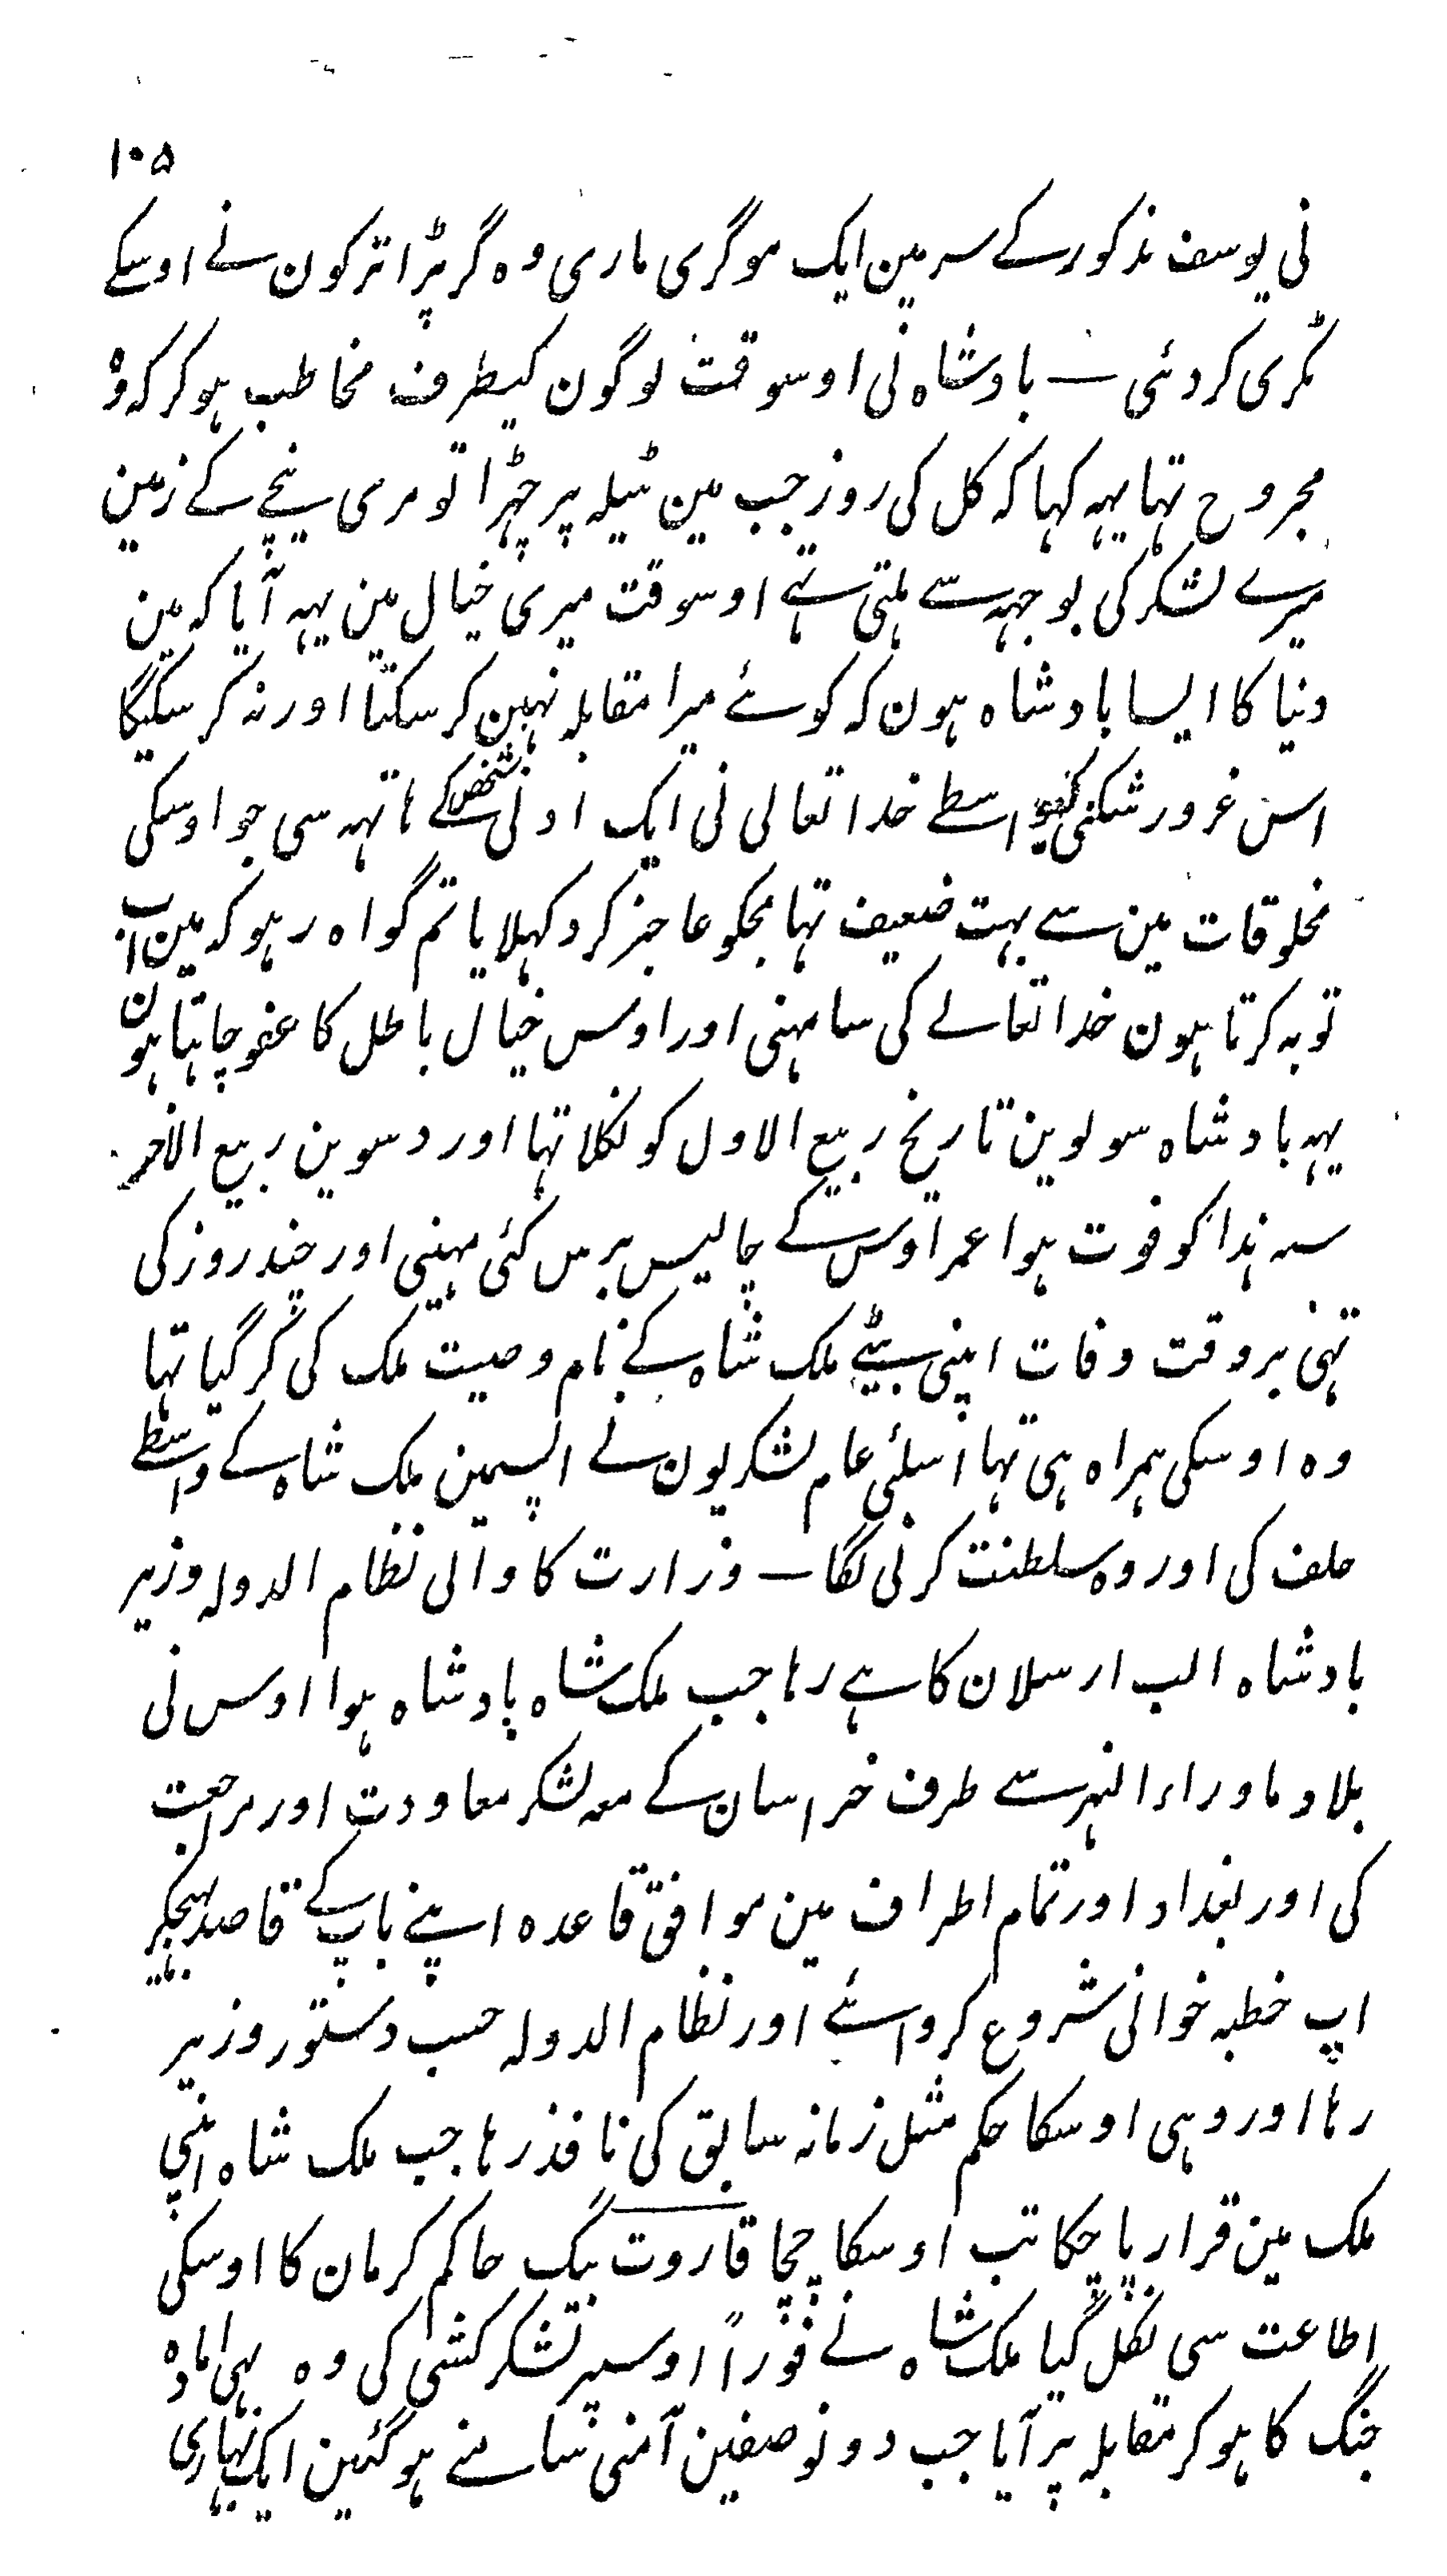 ۱۰۵
نی یوسف مذکور کے سر مین ایک موگری ماری وہ گر پڑا ترکون نے اوسکے
ٹکری کر دئی — بادشاہ نی اوسوقت لوگون کیطرف مخاطب ہو کر کہ وہ
مجروح تہا یہہ کہا کہ کل کی روز جب مین ٹیلہ پر چہڑا تو مری نیچے کے زمین
میرے لشکر کی بوجہہ سے ہلتی تہے اوسوقت میری خیال مین یہہ آیا کہ مین
دنیا کا ایسا بادشاہ ہون کہ کوئے میرا مقابلہ نہین کر سکتا اور نہ کر سکیگا
اس غرور شکنی کیواسطے خدا تعالی نی ایک ادنی شخص کے ہاتہہ سی جو اوسکی
مخلوقات مین سے بہت ضعیف تہا مجکو عاجز کر دکہلایا تم گواہ رہو کہ مین اب
توبہ کرتا ہون خدا تعالے کی سامہنی اور اوس خیال باطل کا عفو چاہتا ہون
یہہ بادشاہ سولوین تاریخ ربیع الاول کو نکلا تہا اور دسوین ربیع الاخر
سنہ ہذا کو فوت ہوا عمر اوس کے چالیس برس کئی مہینی اور چند روز کی
تہی بروقت وفات اپنی بیٹے ملک شاہ کے نام وصیت ملک کی کر گیا تہا
وہ اوسکی ہمراہ ہی تہا اسلئی عام لشکریون نے اپسمین ملک شاہ کے واسطے
حلف کی اور وہ سلطنت کرنی لگا — وزارت کا والی نظام الدولہ وزیر
بادشاہ الب ارسلان کا ہے رہا جب ملک شاہ پادشاہ ہوا اوس نی
بلاد ماوراء النہر سے طرف خراسان کے معہ لشکر معاودت اور مراجعت
کی اور بغداد اور تمام اطراف مین موافق قاعدہ اپنے باپ کے قاصد بہیجکر
اپ خطبہ خوانی شروع کروائے اور نظام الدولہ حسب دستور وزیر
رہا اور وہی اوسکا حکم مثل زمانہ سابق کی نافذ رہا جب ملک شاہ اپنی
ملک مین قرار پا چکا تب اوسکا چچا قاروت بیگ حاکم کرمان کا اوسکی
اطاعت سی نکل گیا ملک شاہ نے فوراً اوسپر لشکر کشی کی وہ بہی امادہ
جنگ کا ہو کر مقابلہ پر آیا جب دونو صفین آمنی سامنے ہو گئین ایک بہاری